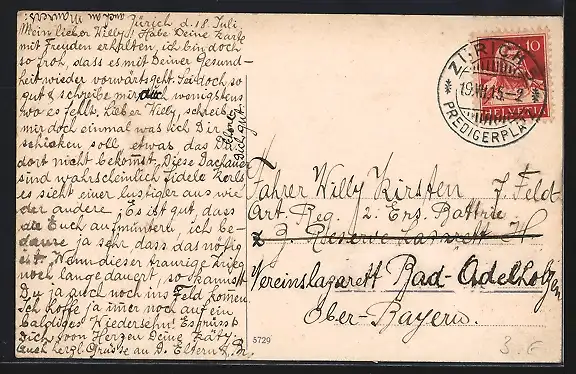 auch an Maurers!
Zürich d. 18 Juli
Mein lieber Willy! Habe Deine Karte
mit Freuden erhalten, ich bin doch
so froh, dass es mit Deiner Gesund-
heit wieder vorwärts geht. Sei doch so
gut & schreibe mir, wenigstens
wo es fehlt. Lieber Willy, schreibe
mir doch einmal was ich Dir
schicken soll, etwas das Du
dort nicht bekommst. Diese Dachauer
sind wahrscheinlich fidele Kerls
es sieht einer lustiger aus wie
der andere. Es ist gut, dass
die Euch aufmuntern, ich be-
daure ja sehr dass das nötig
ist. Wenn dieser traurige Krieg
noch lange dauert, so kannst
Du ja auch noch ins Feld komen.
Ich hoffe ja imer noch auf ein
baldiges Wiedersehn! Es grüsst
Dich von Herzen Deine Käty.
Auch herzl. Grüsse an D. Eltern & Br.
Dich gut.
Fahrer Willy Kirsten 7. Feld-
Art. Reg. 2. Ers. Battrie
z. Z. Reserve Lazarett H
Vereinslazarett Bad Adelholzen
Ober-Bayern.
ZÜRICH
19.VII.15.-9
PREDIGERPLATZ
10
HELVETIA
5729
3.-E